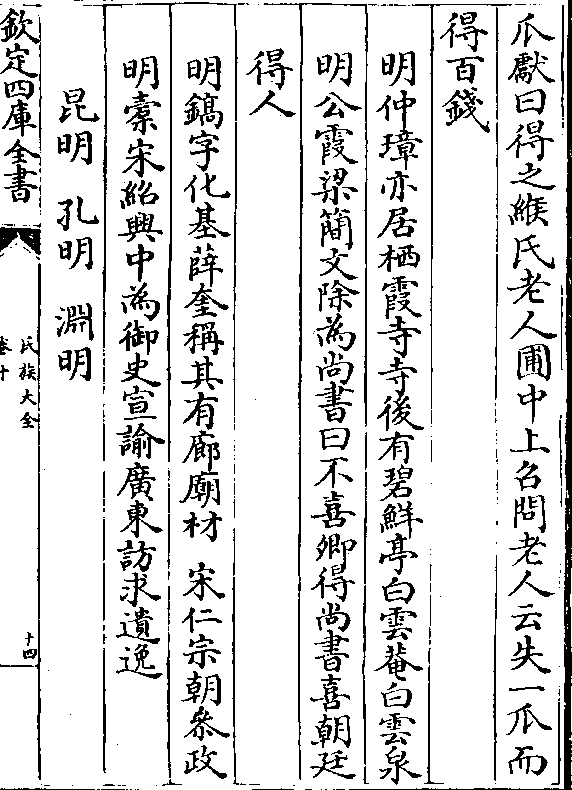 爪獻曰得之緱氏老人圃中上召問老人云失一爪而
得百錢
明仲璋亦居栖霞寺寺後有碧鮮亭白雲菴白雲泉
明公霞梁簡文除為尚書曰不喜卿得尚書喜朝廷
得人
明鎬字化基薛奎稱其有廊廟材 宋仁宗朝叅政
明橐宋紹興中為御史宣諭廣東訪求遺逸
昆明 孔明 淵明
欽定四庫全書
氏族大全
卷十
十四